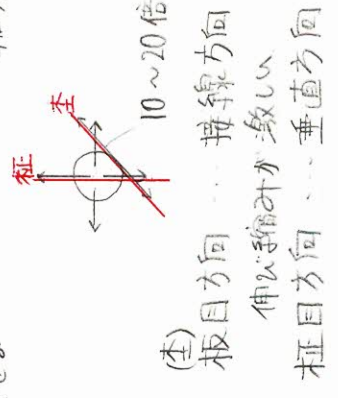 柾
杢
10〜20倍
(杢)
板目方向 … 接線方向
伸び縮みが激しい
柾目方向 … 垂直方向